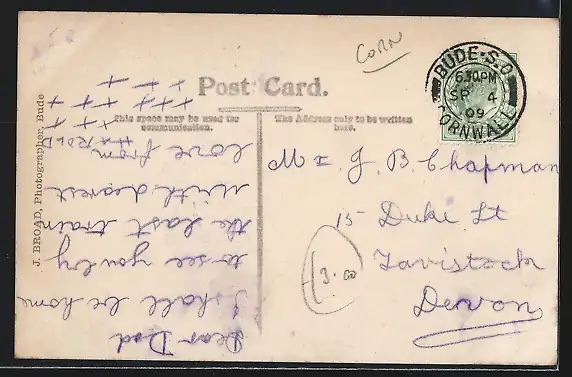 CORN
Post Card.
This space may be used for
communication.
The Address only to be written
here.
BUDE·S.O
6.30PM
SP 4
09
CORNWALL
J. BROAD, Photographer, Bude
Dear Dad
I shall be home
to see you by
the last train
with dearest
love from
HAROLD
+ + +
+ + + +
+ + +
+ +
Mr J. B. Chapman
15 Duke St
Tavistock
Devon
3.00